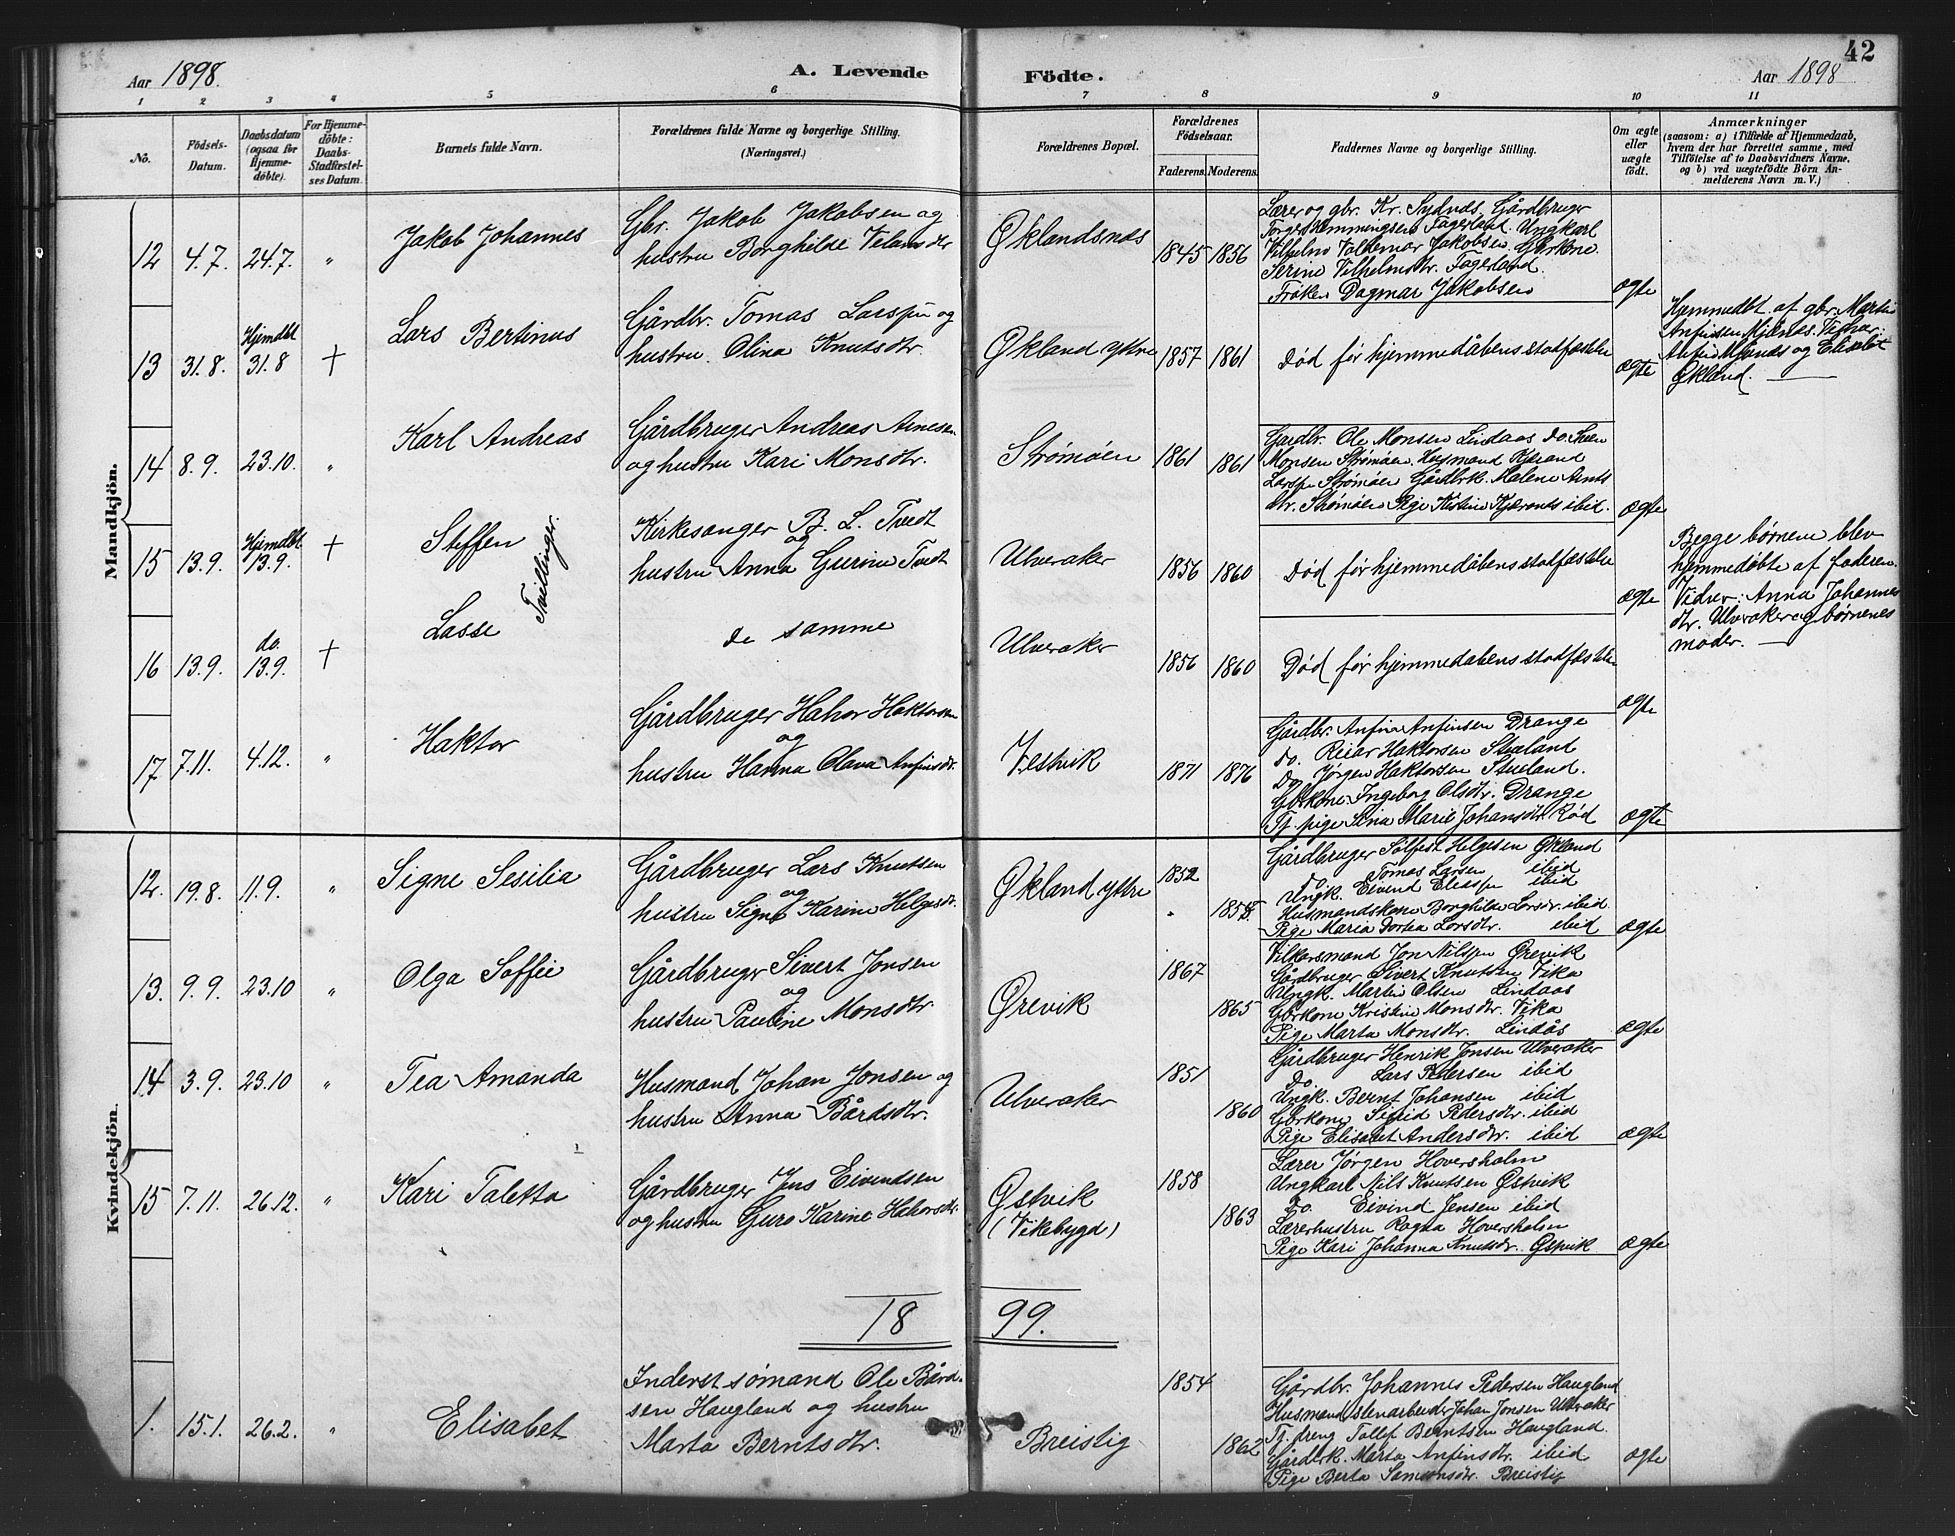 42
Aar 1898.
A. Levende
Födte.
Aar 1898
1 2 3 4 5 6 7 8 9 10 11
No.
Födsels-
Datum.
Daabsdatum
(ogsaa for
Hjemme-
döbte).
For Hjemme-
döbte:
Daabs-
Stadfæstel-
ses Datum.
Barnets fulde Navn.
Forældrenes fulde Navne og borgerlige Stilling.
(Næringsvei.)
Forældrenes Bopæl.
Forældrenes
Födselsaar.
Faderens. Moderens.
Faddernes Navne og borgerlige Stilling.
Om ægte
eller
uægte
födt.
Anmærkninger
(saasom: a) i Tilfælde af Hjemmedaab,
hvem der har forrettet samme, med
Tilföielse af to Daabsvidners Navne,
og b) ved uægtefödte Börn An-
melderens Navn m. V.)
Mandkjön.
12 4.7. 24.7. " Jakob Johannes
Gbr. Jakob Jakobsen og
hustru Borghilde Velamsdtr
Øklandsnæs 1845 1856
Lærer og gbr. Kr. Sydnæs. Gårdbruger
Torger Hemmingsen Fageland. Ungkarl
Vilhelm Valdemar Jakobsen. Gbrkone
Serine Vilhelmsdtr. Fageland.
Frøken Dagmar Jakobsen
ægte
13 31.8. Hjemdbt
31.8 + Lars Bertinus
Gårdbr. Tomas Larssen og
hustru. Olina Knutsdtr.
Økland ytre 1857 1861
Død før hjemmedåbens stadfæstelse
ægte
Hjemmedbt af gbr. Martin
Anfindsen Mjånæs. Vidner:
Anfin Mjånæs og Elisabet
Økland.
14 8.9. 23.10. " Karl Andreas
Gårdbruger Andreas Arnesen
og hustru Kari Monsdtr.
Strømøen 1861 1861
Gardbr. Ole Monsen Lindaas do. Sven
Monsen Strømøen. Husmand
Larssen Strømøen Gårdbrk. Malene
dtr. Strømøen Pige Kirstine ibid.
ægte
15 13.9. Hjemdbt
13.9. + Steffen
Tvellinger.
Kirkesanger B. L. Tvedt
og
hustru Anna Gurine Tvedt
Ulveraker 1856 1860
Død før hjemmedåbens stadfæstelse
ægte
Begge børnene blev
hjemmedøbte af faderen.
Vidner: Anna Johannes
dtr. Ulveraker og børnenes
moder.
16 13.9. do.
13.9. + Lasse
de samme
Ulveraker 1856 1860
Død før hjemmedåbens stadfæstelse
ægte
17 7.11. 4.12. " Haktor
Gårdbruger Hahor Haktorsen
og
hustru Hanna Olava Anfinsdtr.
Vestvik 1871 1876
Gårdbr. Anfin Anfinsen Drange
do. Reiar Haktorsen Stueland
Do Jørgen Haktorsen Stueland.
Gbrkone Ingeborg Olsdtr. Drange
Tj. pige Sina Marie Johansdtr Rød
ægte
Kvindekjön.
12. 19.8. 11.9. " Signe Sesilia
Gårdbruger Lars Knutsen
og
hustru Signe Karine Helgesdtr.
Økland ytre 1852 " 1855.
Gårdbruger Salfest Helgesen Økland
Do Tomas Larsen ibid
Ungk. Eivind Eliassen ibid
Husmandskone Borghilde Larsdtr. ibid.
Pige Maria Dortea Larsdtr. ibid
ægte
13. 9.9. 23.10 " Olga Soffie
Gårdbruger Sivert Jonsen
og
hustru Pauline Monsdtr.
Ørevik 1867 1865
Vilkårsmand Jon Nilssen Ørevik
Gårdbruger Sivert Knutsen Vika
Ungk. Martin Olsen Lindaas
Gbrkone Kristine Monsdtr. Vika
Pige Marta Monsdtr. Lindås
ægte
14 3.9. 23.10 " Tea Amanda
Husmand Johan Jonsen og
hustru Anna Bårdsdtr.
Ulveraker 1851 1860
Gårdbruger Henrik Jonsen Ulveraker
Do. Lars Pedersen ibid
Ungk. Bernt Johansen ibid
Gbrkone Sigrid Pedersdtr. ibid
Pige Elisabet Andersdtr. ibid
ægte
15 7.11. 26.12. " Kari Taletta
Gårdbruger Jens Eivindsen
og hustru Guro Karine Hahorsdtr.
Østvik
(Vikebygd) 1858 1863
Lærer Jørgen Hoversholm
Ungkarl Nils Knutsen Østvik
Do. Eivind Jensen ibid
Lærerhustru Ragna Hoversholm
Pige Kari Johanna Knutsdtr. Østvik
ægte
18 99.
1. 15.1. 26.2. " Elisabet
Inderst sømand Ole Bård-
sen Haugland og hustru
Marta Berntsdtr.
Breistig 1854 1862
Gårdbr. Johannes Pedersen Haugland
Husmand, stenarbeider Johan Jonsen Ulveraker
Tj. dreng Tollef Berntsen Haugland.
Gårdbrk. Marta Anfinsdtr. ibid
Pige Berta Samsonsdtr. Breistig
ægte